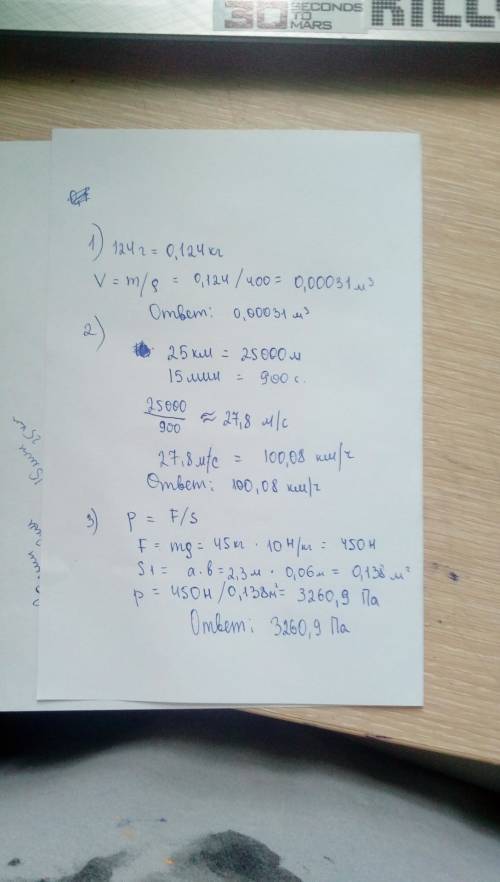 30 SECONDS TO MARS
1) 124 г = 0,124 кг
V = m/ρ = 0,124 / 400 = 0,00031 м³
Ответ: 0,00031 м³
2)
25 км = 25000 м
15 мин = 900 с.
25000/900 ≈ 27,8 м/с
27,8 м/с = 100,08 км/ч
Ответ: 100,08 км/ч
3) P = F/S
F = mg = 45 кг · 10 Н/кг = 450 Н
S1 = a·b = 2,3 м · 0,06 м = 0,138 м²
p = 450 Н / 0,138 м² = 3260,9 Па
Ответ: 3260,9 Па